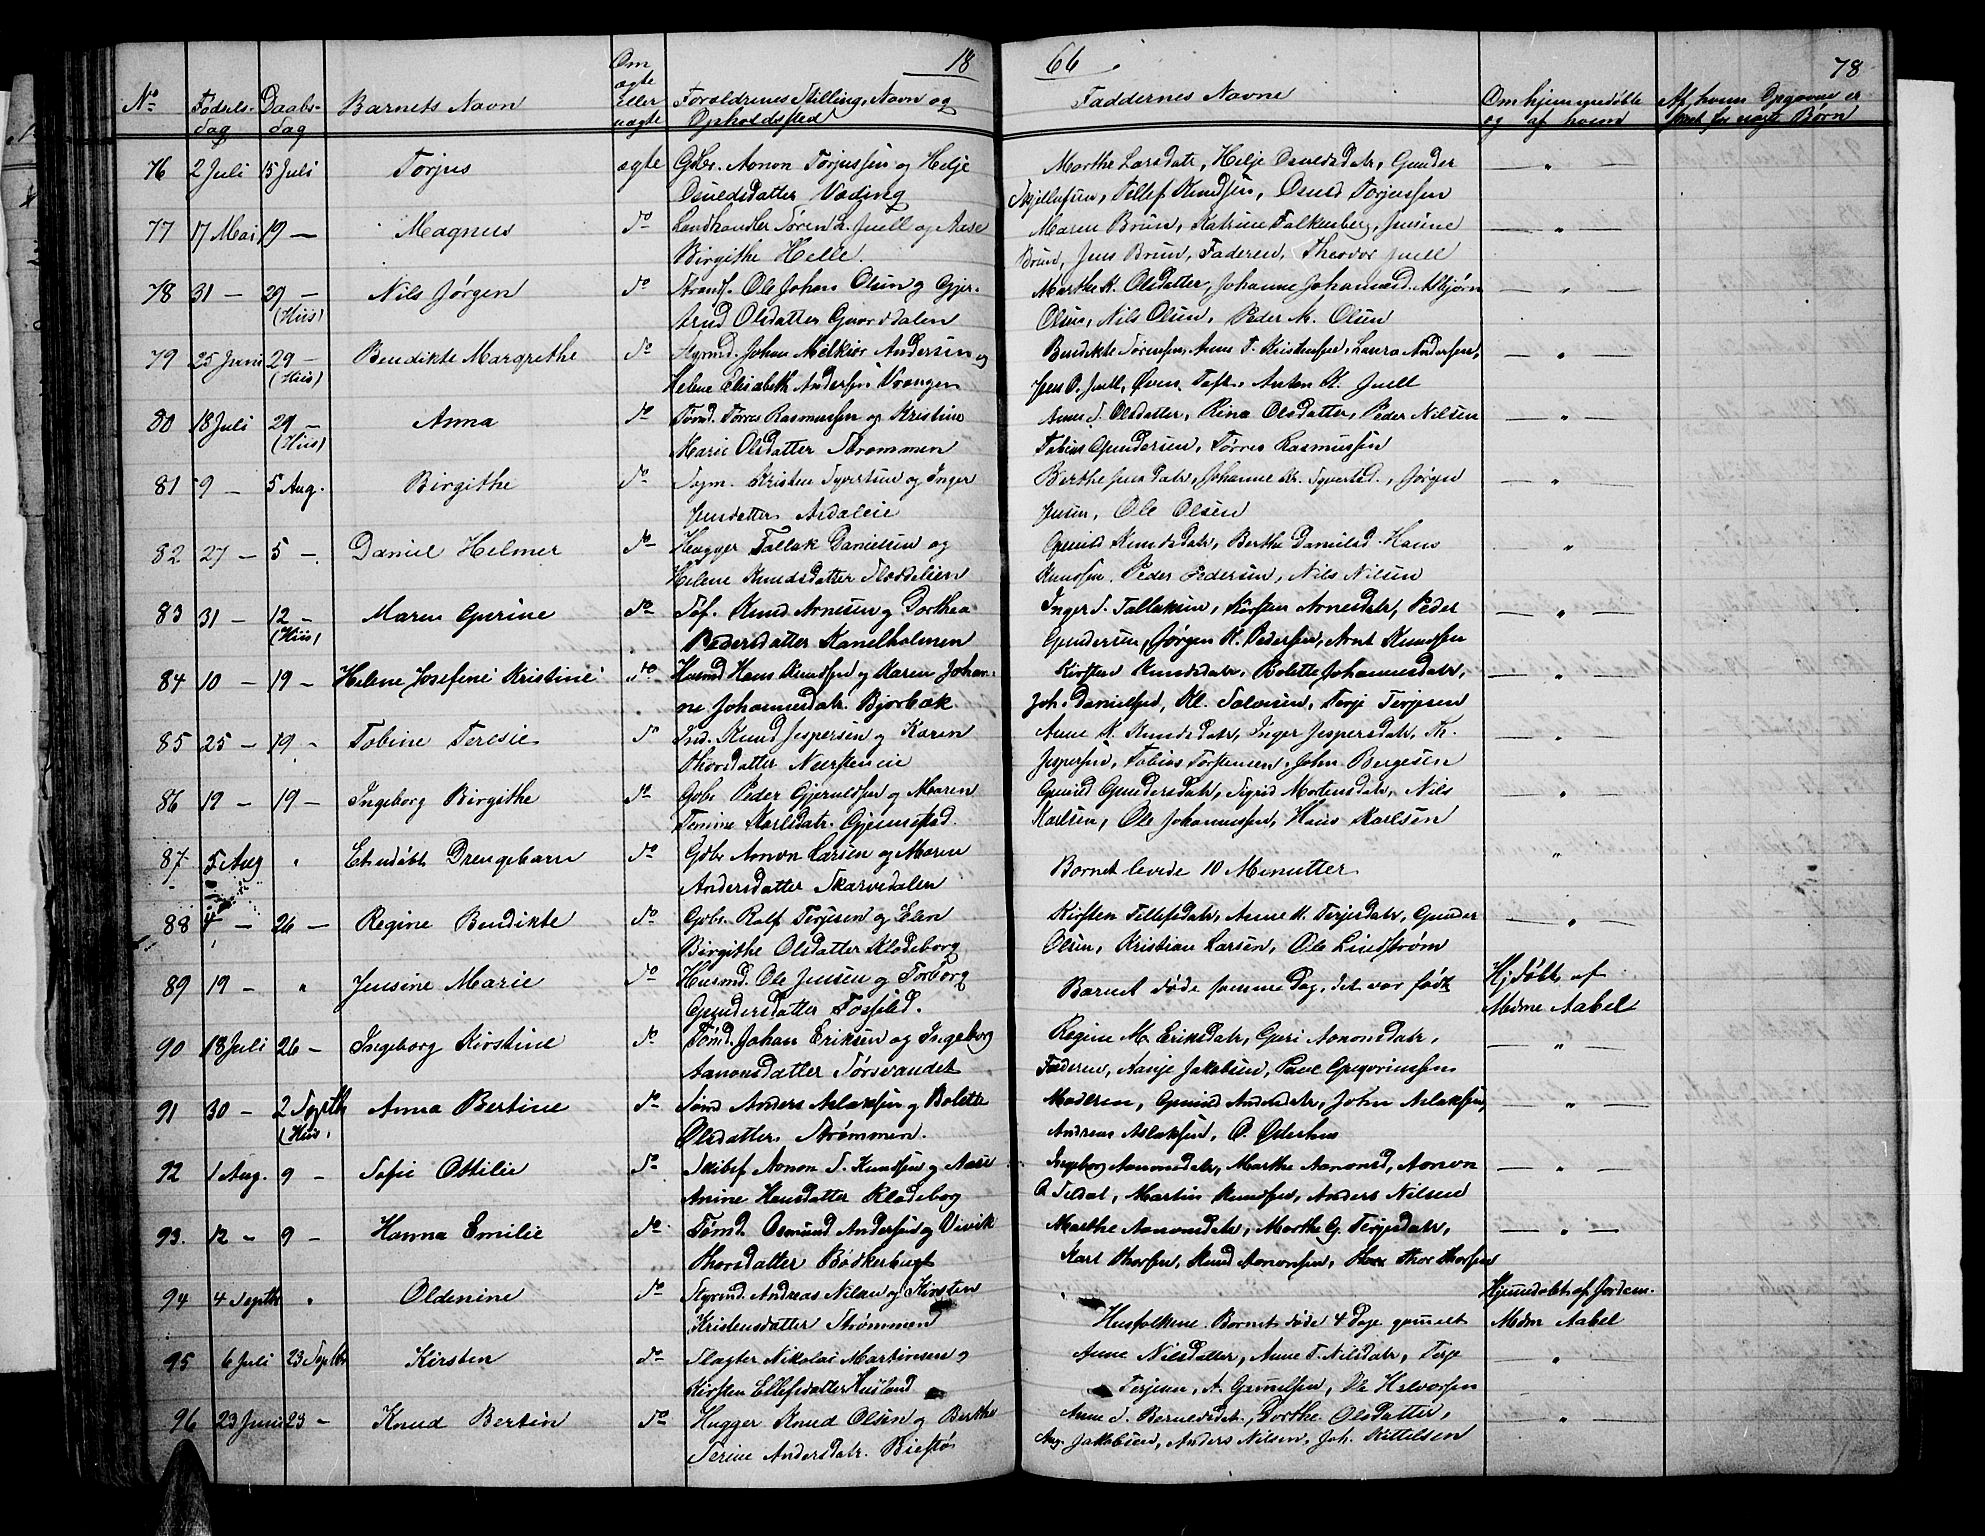 18 66 78
No Fødsels- Daabs- Barnets Navn Om Forældrenes Stilling, Navn og Faddernes Navne Om hjemmedøbte Af hvem Opgaven er
dag dag ægte eller uægte Opholdssted og af hvem for uægte Børn
76 2 Juli 15 Juli Torjus ægte Gbr. Aanon Torjussen og Helje Marthe Larsdatr, Helje Osuldsdatr, Gunder — „ —
Osuldsdatter Tellef Knudsen, Osuld Torjussen
77 17 Mai 19 — Magnus do Landhandler Søren L. Juell og Aase Maren Bruun, Katrine Falkenberg, Jensine — „ —
Birgithe Helle. Bruun, Jens Bruun, Faderen, Theodor Juell
78 31 — 29 — Nils Jørgen do Ole Johan Olsen og Gjer- Marthe K. Olsdatter, Johanne Johannesd. Asbjørn — „ —
(Hiis) trud Olsdatter Olsen, Nils Olsen, Peder M. Olsen
79 25 Juni 29 — Bendikte Margrethe do Styrmd. Johan Melkior Andersen og Bendikte Sørensen, Anne T. Kristensen, Laura Andersen, — „ —
(Hiis) Helene Elisabeth Andersen Vrangen Jens P. Juell, Anton K. Juell
80 18 Juli 29 — Anna do Tømd. Tørres Rasmussen og Kristine Anne S. Olsdatter, Rina Olsdatter, Peder Nilsen — „ —
(Hiis) Marie Olsdatter Strømmen Tobias Gundersen, Tørres Rasmussen
81 9 — 5 Aug. Birgithe do Kristen Syvertsen og Inger Berthe Jensdatr, Johanne Kr. Syvertsd., Jørgen — „ —
Jensdatter Jensen, Ole Olsen
82 27 — 5 — Daniel Helmer do Hugger Tallak Danielsen og Gunild Knudsdatr, Berthe Danielsd. Hans „ —
Helene Knudsdatter Knudsen, Peder Pedersen, Nils Nilsen
83 31 — 12 — Maren Gurine do Søf. Knud Arnesen og Dorthea Inger S. Tallaksen, Kirsten Arnesdatr, Peder — „ —
(Hiis) Pedersdatter Kanelholmen Gundersen, Jørgen K. Pedersen, Arnt Knudsen
84 10 — 19 — Helene Josefine Kristine do Husmd Hans Knudsen og Karen Johan- Kirsten Knudsdatr, Bolette Johannesdatr, — „ —
ne Johannesdatr. Bjorbæk Joh. Danielsen, Kl. Terje Terjesen
85 25 — 19 — Tobine Teresie do Ind. Knud Jespersen og Karen Anne K. Knudsdatr, Inger Jespersdatr, Th. — „ —
Thorsdatter Jespersen, Tobias Torstensen, John Bergesen
86 12 — 19 — Ingeborg Birgithe do Gbr Peder Gjeruldsen og Maren Gunild Gundersdatr, Sigrid Mortensdatr, Nils „
Karlsdatr. Karlsen, Ole Johannessen, Hans Karlsen
87 5 Aug „ Et udøbt Drengebarn do Gbr Aanon Larsen og Maren Barnet levede 10 Minutter „
Andersdatter Skarvedalen
88 4 — 26 — Regine Bendikte do Gbr. Rolf Terjesen og Elen Kirsten Tellefsdatr, Anne K. Terjesdatr, Gunder — „ —
Birgithe Olsdatter Klødeborg Olsen, Kristian Larsen, Ole Lindstrøm
89 19 — „ Jensine Marie do Husmd. Ole Jensen og Torborg Barnet døde samme Dag, det var født Hjdøbt af
Gundersdatter Mdme Aabel
90 18 Juli 26 — Ingeborg Kirstine do Tømd. Johan Eriksen og Ingeborg Regine M. Eriksdatr, Guri Aanonsdatr, — „ —
Aanonsdatter Faderen, Aanje Jakobsen, Paul Gregoriussen
91 30 — 2 Septb Anna Bertine do Tømd Anders Aslaksen og Bolette Moderen, Gunild Andersdatr, John Aslaksen, — „ —
(Hiis) Olsdatter. Strømmen. Andreas Aslaksen, O. Osterhus
92 1 Aug. 9 — Sofie Ottilie do Skibsf Aanon S. Knudsen og Aase Ingeborg Aanonsdatr, Marthe Aanonsd, Aanon — „ —
Anine Hansdatter Klødeborg Martin Knudsen, Anders Nilsen
93. 12 — 9 — Hanna Emilie do Tømd. Osmund Andersen og Vivik Marthe Aanonsdatr, Marthe G. Terjesdatr, — „ —
Thorsdatter Bødkerbugt Karl Thorsen, Knud Aanonsen, Thor Thorsen
94 4 Septb „ Oldenine do Styrmd. Andreas Nilsen og Kirsten Husfolkene. Barnet døde 4 Dage gammelt Hjemdøbt af Jordem.
Kristensdatter Strømmen Mdm Aabel
95 6 Juli 23 Septb Kirsten do Slagter Nikolai Martinusen og Anne Nilsdatter, Anne T. Nilsdatr, Terje — „ —
Kirsten Ellefsdatter Huslund Terjesen, A. Gunulfsen, Ole Halvorsen
96 23 Juni 23 — Knud Bertin do Hugger Knud Olsen og Berthe Anne S. Dorthe Olsdatter, — „ —
Terine Andersdatr. Aug. Jakobsen, Anders Nilsen, Joh. Kittelsen